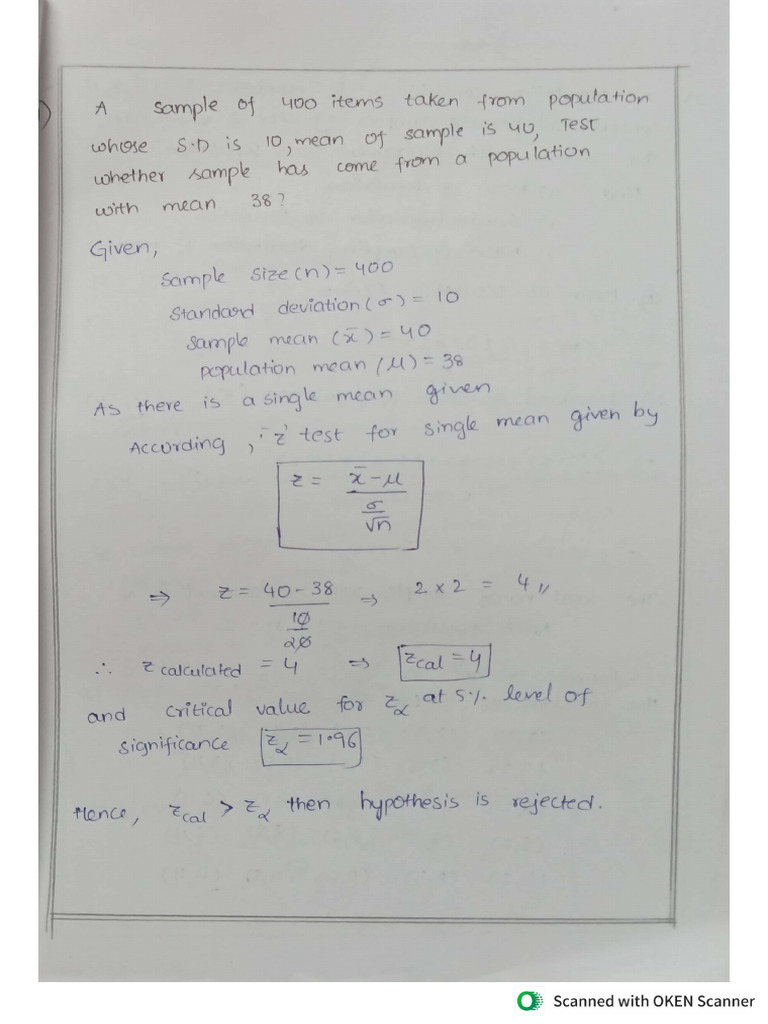 1)
A sample of 400 items taken from population
whose S.D is 10, mean of sample is 40, Test
whether sample has come from a population
with mean 38?
Given,
Sample size (n) = 400
Standard deviation (σ) = 10
Sample mean (x̄) = 40
population mean (μ) = 38
As there is a single mean given
According, 'z' test for single mean given by
z = x̄ - μ / σ/√n
⇒ z = 40 - 38 / 10/20 ⇒ 2 × 2 = 4 //
∴ z calculated = 4 ⇒ zcal = 4
and critical value for zα at 5% level of
significance zα = 1.96
Hence, zcal > zα then hypothesis is rejected.
Scanned with OKEN Scanner